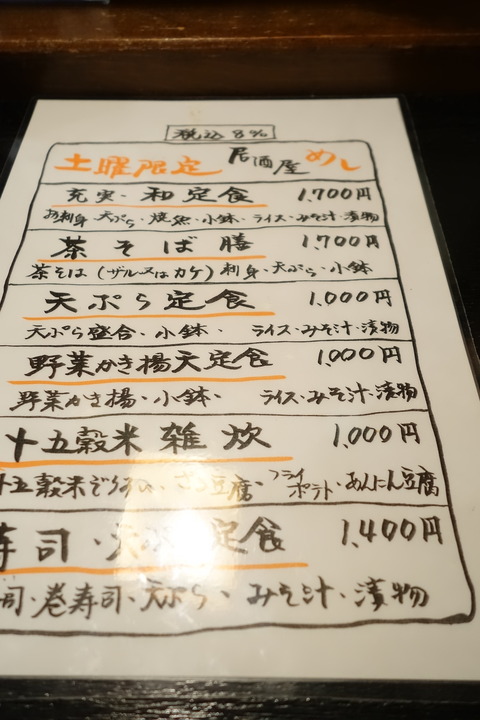 税込8%
土曜限定 居酒屋めし
充実・和定食 1,700円
お刺身・天ぷら・焼魚・小鉢・ライス・みそ汁・漬物
茶そば膳 1,700円
茶そば(ザル又はカケ)刺身・天ぷら・小鉢
天ぷら定食 1,000円
天ぷら盛合・小鉢・ライス・みそ汁・漬物
野菜かき揚天定食 1,000円
野菜かき揚・小鉢・ライス・みそ汁・漬物
十五穀米雑炊 1,000円
十五穀米ぞうすい・ざる豆腐・フライポテト・あんにん豆腐
寿司・天ぷら定食 1,400円
司・巻寿司・天ぷら・みそ汁・漬物